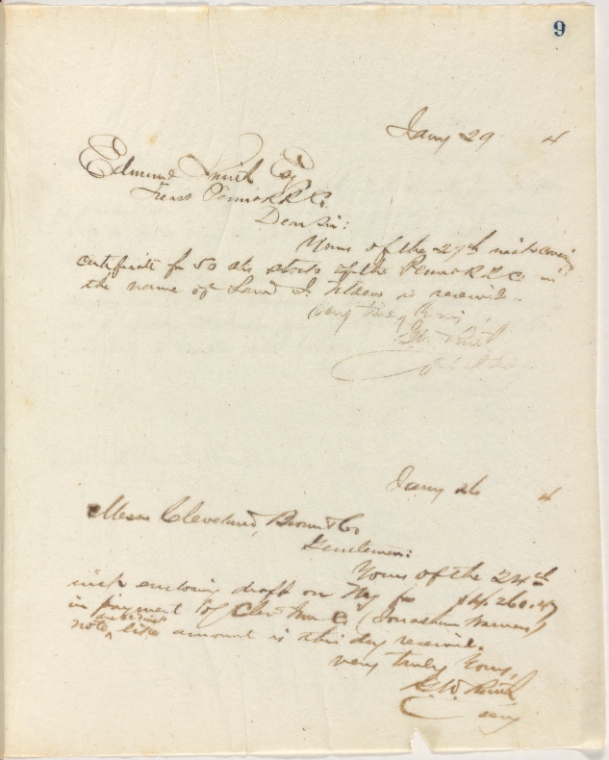 9
Jany 29 4
Edmund Smith Esq
Treas Penna R.R. Co.
Dear Sir:
Yours of the 27th inst covering
certificate for 50 shs stock of the Penna R.R. Co in
the name of Saml J. Tilden is received.
very truly Yours,
G.W. Smith
Jany 26 4
Messrs Cleveland, Brown & Co
Gentlemen:
Yours of the 24th
inst enclosing draft on N.Y. for $4,260.47
in payment of Clev Co (Jonathan Warner)
note like amount is this day received.
very truly Yours,
G.W. Smith